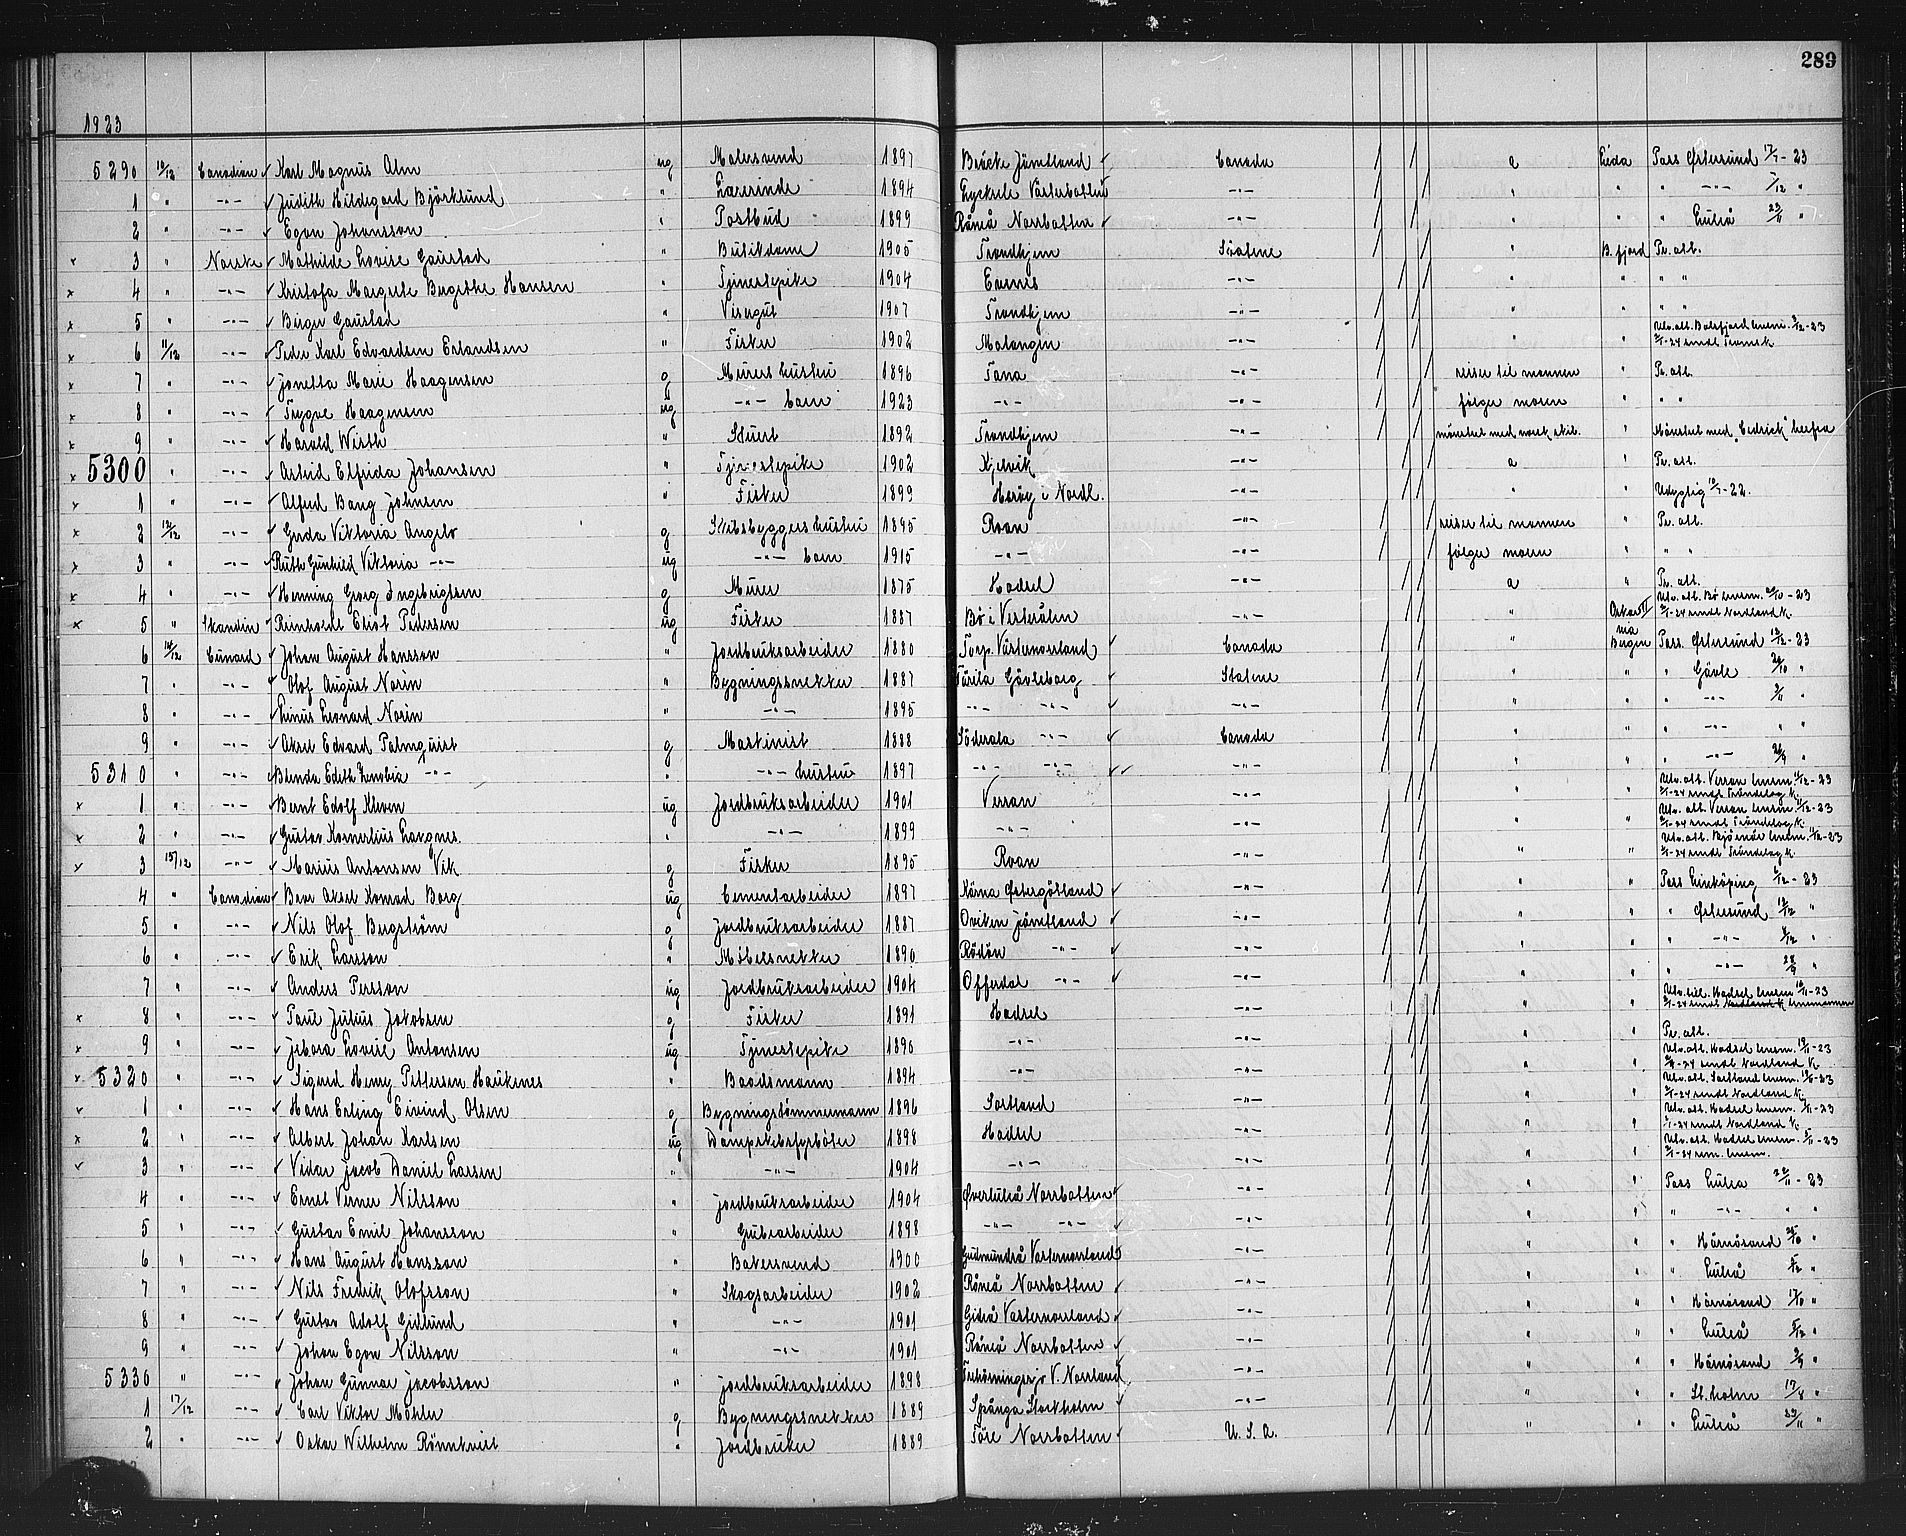 289
1923
5290 10/12 Canadian Karl Magnus Alm ug Malersvend 1897 Bräcke Jämtland Canada a Leda Pass Østersund 17/7-23
1 " -"- Judith Hildegard Björklund " Lærerinde 1894 Lycksele Västerbotten -"- " " " -"- 7/12 "
2 " -"- Egon Johansson " Postbud 1899 Råneå Norrbotten -"- " " " Luleå 23/11 "
x 3 " Norske Mathilde Lovise Gaustad " Butikdame 1905 Trondhjem Statene " B.fjord Pr. att.
x 4 " -"- Kristofa Margrete Birgithe Hansen " Tjenestepike 1904 Evenes -"- " " " "
x 5 " -"- Birger Gaustad " Visergut 1907 Trondhjem -"- " "
x 6 11/12 -"- Peder Karl Edvardsen Erlandsen " Fisker 1902 Malangen -"- " " Utv. att. Balsfjord lensm. 3/12-23
2/1-24 sendt Troms k.
x 7 " -"- Jonetta Marie Haagensen g Murers hustru 1896 Tana -"- reiser til mannen " Pr. att.
x 8 " -"- Trygve Haagensen ug -"- barn 1923 -"- -"- følger moren " " "
x 9 " -"- Harald Wirth " Stuert 1892 Trondhjem -"- mønstret med norsk skib. " Mønstret med "Cedrick" herfra
x 5300 " -"- Astrid Elfrida Johansen " Tjenestepike 1902 Kjelvik -"- a " Pr. att.
x 1 " -"- Alfred Bang Johnsen " Fisker 1899 Herøy i Nordl. -"- " " Udygtig 12/7-22.
x 2 12/12 -"- Gerda Viktoria Angelo g Skibsbyggers hustru 1895 Roan -"- reiser til mannen " Pr. att.
x 3 " -"- Ruth Gunhild Viktoria -"- ug -"- barn 1915 -"- -"- følger moren " " "
x 4 " -"- Henning Georg Ingebrigtsen g Murer 1875 Hadsel -"- a " Pr. att.
x 5 " Skandin Reinholdt Eliot Pedersen ug Fisker 1887 Bø i Vesterålen -"- " Oskar II Utv. att. Bø lensm. 2/10-23
2/1-24 sendt Nordland k.
6 14/12 Cunard Johan August Hansson " Jordbruksarbeider 1880 Torp Västernorrland Canada " via Bergen Pass. Østersund 12/12-23
7 " -"- Olof August Norin " Bygningssnekker 1887 Färila Gävleborg Statene " " " Gävle 24/10 "
8 " -"- Linus Leonard Norin " -"- 1895 -"- -"- -"- " " " -"- 3/11 "
9 " -"- Aksel Edvard Palmquist g Maskinist 1888 Söderala -"- Canada " " " -"- " "
5310 " -"- Blenda Edith Zenobia -"- " -"- hustru 1897 -"- -"- -"- " " " -"- 26/9 "
x 1 " -"- Bernt Edolf Kleven ug Jordbruksarbeider 1901 Verran -"- " " Utv. att. Verran lensm. 11/12-23
2/1-24 sendt Trøndelag k.
x 2 " -"- Gustav Kornelius Largnes " -"- 1899 -"- -"- " " Utv. att. Verran lensm. 11/12-23
2/1-24 sendt Trøndelag k.
x 3 15/12 -"- Marius Antonsen Vik g Fisker 1895 Roan -"- " " Utv. att. Bjørnør lensm. 11/12-23
2/1-24 sendt Trøndelag k.
4 " Canadian Bror Aksel Konrad Borg ug Cementarbeider 1897 Kärna Østergötland -"- " " Pass Linköping 6/12-23
5 " -"- Nils Olof Bergström g Jordbruksarbeider 1887 Oviken Jämtland -"- " " " Østersund 12/12 "
6 " -"- Erik Larsson " Møbelsnekker 1890 Rödön -"- -"- " " " -"- 4/12 "
7 " -"- Anders Persson ug Jordbruksarbeider 1904 Offerdal -"- -"- " " " -"- 28/9 "
x 8 " -"- Paul Julius Jakobsen g Fisker 1891 Hadsel -"- " " Utv. till. Hadsel lensm. 10/11-23
2/1-24 sendt Nordland k. lensmannen
x 9 " -"- Jebora Lovise Antonsen ug Tjenestepike 1896 -"- -"- " " Pr. att.
x 5320 " -"- Sigurd Henry Pettersen Haukenes " Baadsmann 1894 -"- -"- " " Utv. att. Hadsel lensm. 19/11-23
2/1-24 sendt Nordland k.
x 1 " -"- Hans Erling Eivind Olsen g Bygningstømmermann 1896 Sortland -"- " " Utv. att. Sortland lensm. 19/11-23
2/1-24 sendt Nordland k.
x 2 " -"- Albert Johan Karlsen ug Dampskibsfyrbøter 1898 Hadsel -"- " " Utv. att. Hadsel lensm. 5/11-23
2/1-24 sendt Nordland k.
x 3 " -"- Vidar Jacob Daniel Larsen " -"- 1904 -"- -"- " " Utv. att. Hadsel lensm. 5/11-23
2/1-24 sen. lensm.
4 " -"- Ernst Verner Nilsson " Jordbruksarbeider 1904 Øverluleå Norrbotten -"- " " Pass Luleå 22/11-23
5 " -"- Gustav Emil Johansson " Grubearbeider 1898 -"- -"- -"- " " " -"- " "
6 " -"- Hans August Hansson " Bakersvend 1900 Gudmundrå Västernorrland -"- " " " Härnösand 25/10 "
7 " -"- Nils Fredrik Olofsson " Skogsarbeider 1902 Råneå Norrbotten -"- " " " Luleå 5/12 "
8 " -"- Gustav Adolf Gidlund " -"- 1901 Gideå Västernorrland -"- " " " Härnösand 17/10 "
9 " -"- Johan Egon Nilsson " -"- 1901 Råneå Norrbotten -"- " " " Luleå 5/12 "
5330 " -"- Johan Gunnar Jacobsson " Jordbruksarbeider 1898 Trehörningsjö V. Norrland -"- " " " Härnösand 3/9 "
1 17/12 -"- Carl Viktor Möhler g Bygningssnekker 1889 Spånga Stockholm -"- " " " St.holm 17/8 "
2 " -"- Oskar Wilhelm Rönnkvist " Jordbruker 1889 Töre Norrbotten U.S.A. " " " Luleå 23/11 "